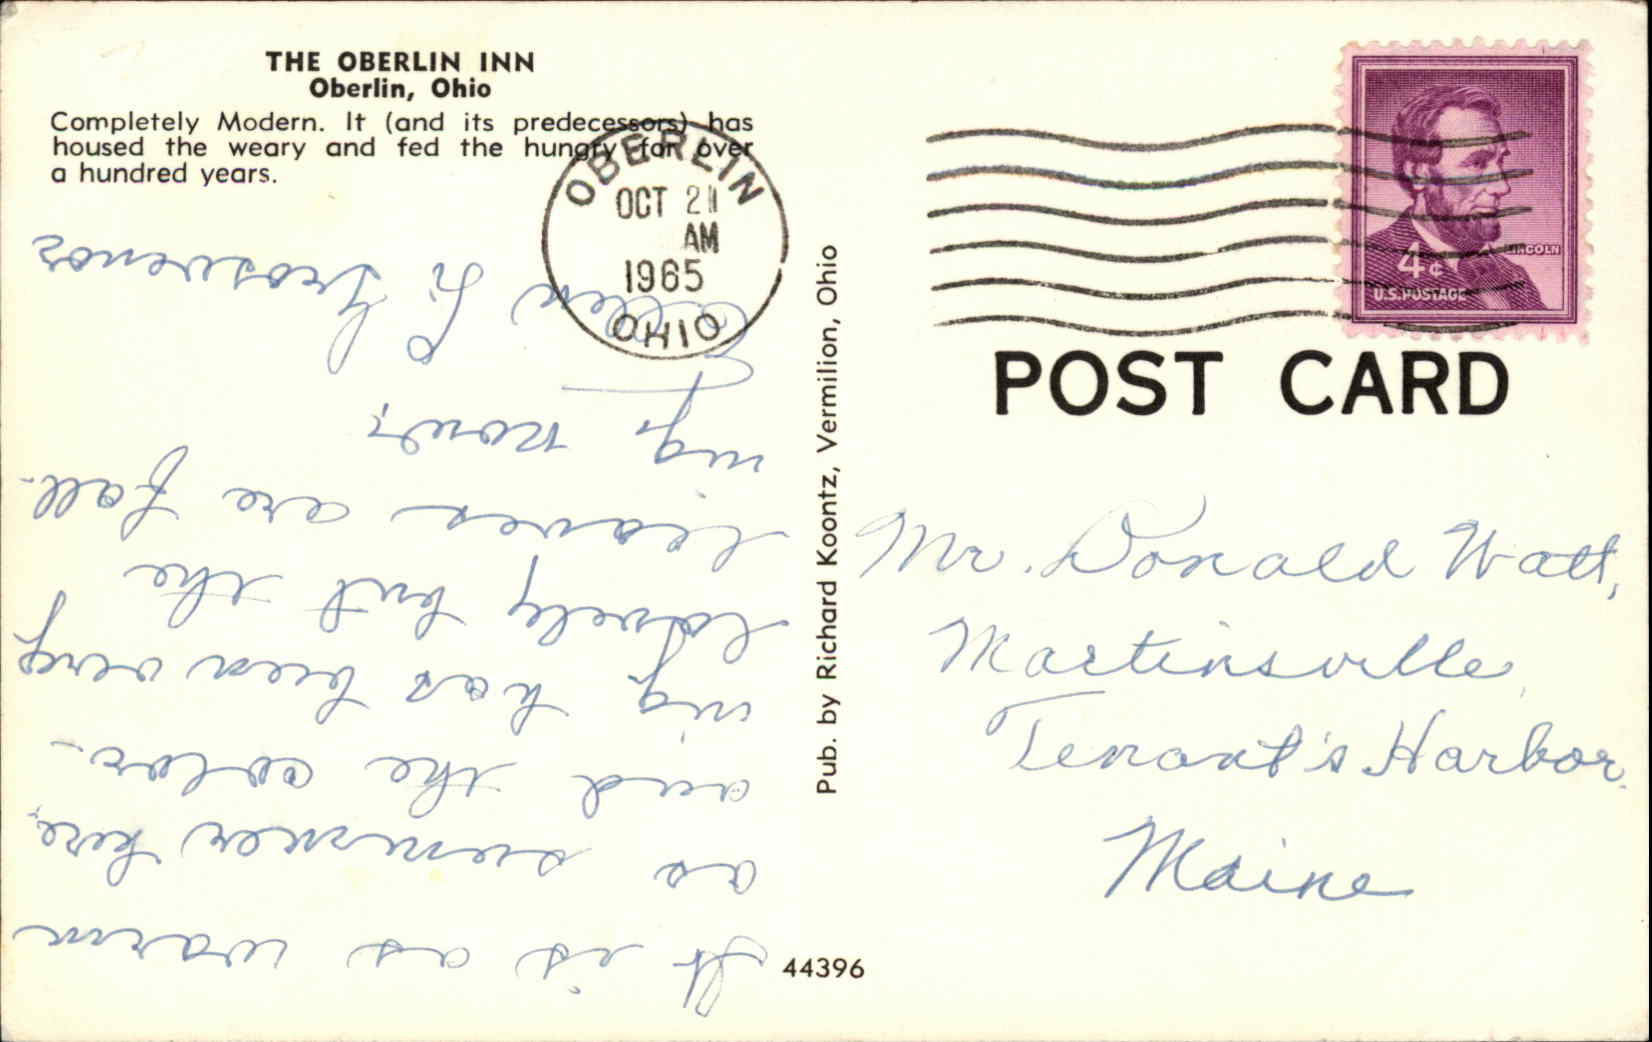 THE OBERLIN INN
Oberlin, Ohio
Completely Modern. It (and its predecessors) has
housed the weary and fed the hungry for over
a hundred years.
OBERLIN
OCT 21
AM
1965
OHIO
LINCOLN
4¢
U.S. POSTAGE
POST CARD
Pub. by Richard Koontz, Vermilion, Ohio
Mr. Donald Watt,
Martinsville,
Tenant's Harbor,
Maine
44396
It is as warm
as summer here,
and the color-
ing has been very
lovely but the
leaves are fall-
ing now.
L. Grosvenor